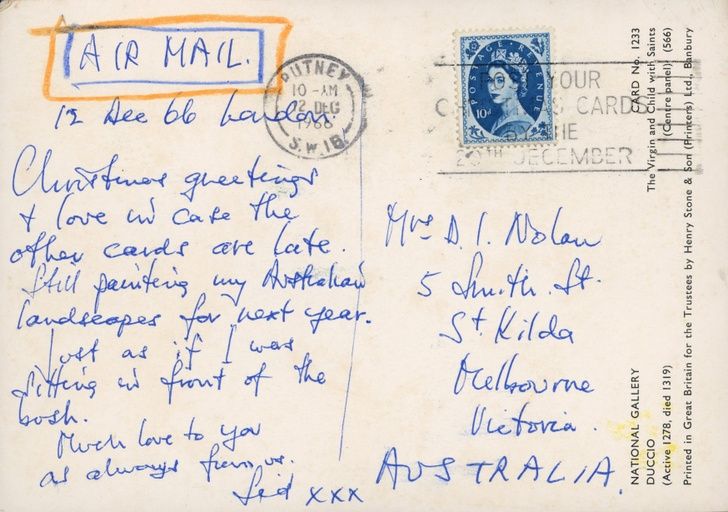 AIR MAIL.
PUTNEY
10 - AM
12 DEC
1966
S.W.15
POSTAGE REVENUE
10d
POST YOUR
CHRISTMAS CARDS
BY THE
20TH DECEMBER
12 Dec 66 London.
Christmas greetings
& love in case the
other cards are late.
Still painting my Australian
landscapes for next year.
Just as if I was
sitting in front of the
bush.
Much love to you
as always from us.
Sid xxx
Mrs D. I. Nolan
5 Smith. St.
St Kilda
Melbourne
Victoria.
AUSTRALIA.
NATIONAL GALLERY CARD No. 1233
DUCCIO The Virgin and Child with Saints
(Active 1278, died 1319) (Centre panel) (566)
Printed in Great Britain for the Trustees by Henry Stone & Son (Printers) Ltd., Banbury